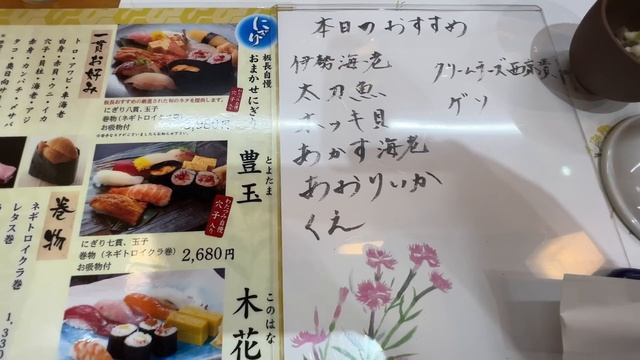 本日のおすすめ
伊勢海老
太刀魚
ホッキ貝
あかす海老
あおりいか
くえ
クリームチーズ西京漬
ゲソ
にぎり
板長自慢
おまかせにぎり
板長おすすめの厳選された旬のネタを提供します。
にぎり八貫、玉子
お吸物付
とよたま
豊玉
わたつみ自慢
穴子入り
にぎり七貫、玉子
巻物（ネギトロイクラ巻）
お吸物付
2,680円
このはな
木花
一貫お好み
トロ・アワビ・車海老
白身・赤貝・ウニ・イカ
穴子・貝柱・海老・
赤身・カンパチ・アジ
巻物
ネギトロイクラ巻
レタス巻